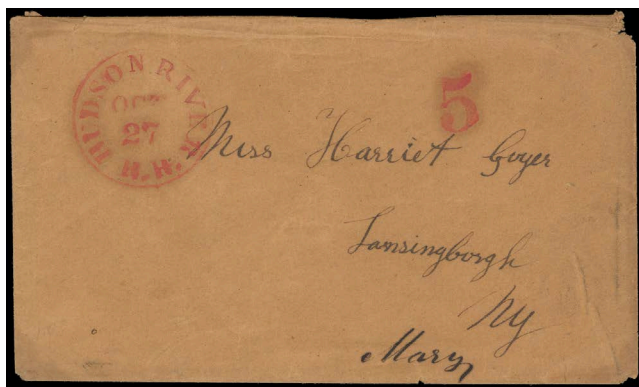 HUDSON RIVER R.R.
OCT
27
5
Miss Harriet Goyer
Lansingborgh
NY
Mary